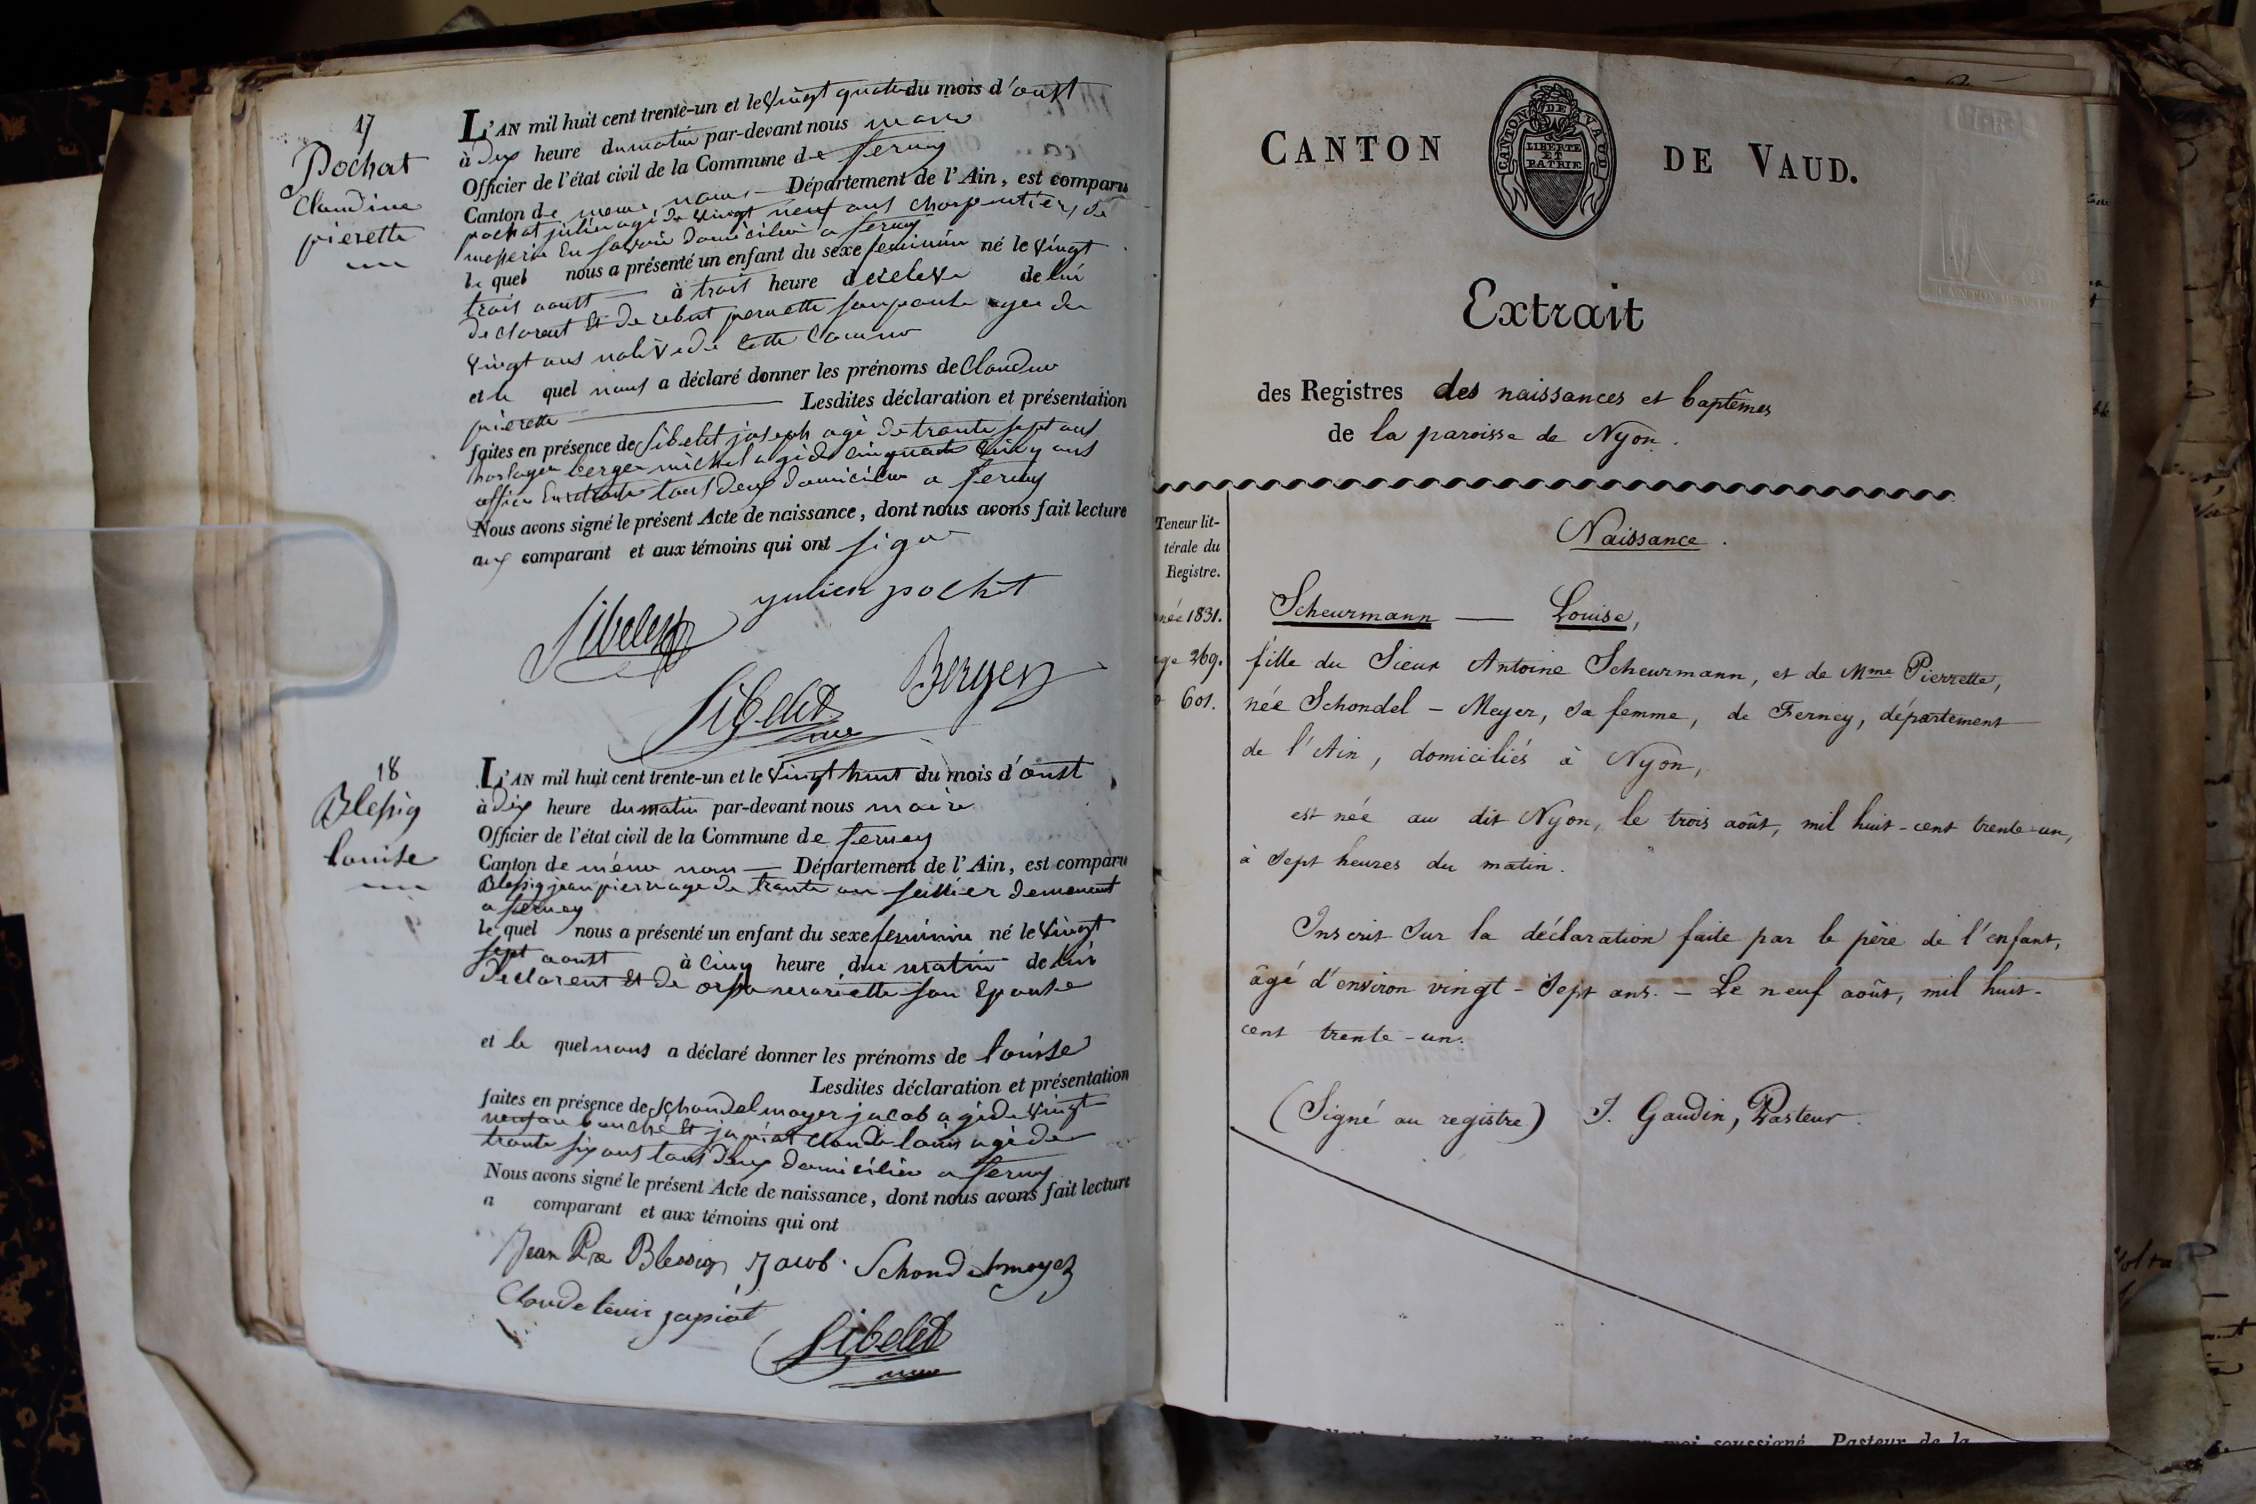 17
Pochat
Claudine
pierette
L'AN mil huit cent trente-un et le vingt quatre du mois d'oust
à dix heure du matin par-devant nous maire
Officier de l'état civil de la Commune de ferney
Canton de meme nom — Département de l'Ain, est comparu
pochat julien agé de vingt neuf ans charpentier, de
en savoie domicilié a ferney
le quel nous a présenté un enfant du sexe feminin né le vingt
trois aoust — à trois heure de relevé de lui
declarent et de pernette son epouse agee de
vingt ans native de cette Commune
et le quel nous a déclaré donner les prénoms de Claudine
pierette — Lesdites déclaration et présentation
faites en présence de Sibelet joseph agé de trante sept ans
horloger berger michel agé de cinquante cinq ans
officier en retraite tous deux domicilié a ferney
Nous avons signé le présent Acte de naissance, dont nous avons fait lecture
aux comparant et aux témoins qui ont signé
Sibelet julien pochat
Berger
Sibelet
18
Blessig
louise
L'AN mil huit cent trente-un et le vingt huit du mois d'oust
à dix heure du matin par-devant nous maire
Officier de l'état civil de la Commune de ferney
Canton de méme nom — Département de l'Ain, est comparu
Blessig jean pierre age de trante un sellier demeurent
a ferney
le quel nous a présenté un enfant du sexe feminin né le vingt
sept aoust à cinq heure du matin de lui
declarent et de mariette son Epouse
et le quel nous a déclaré donner les prénoms de louise
Lesdites déclaration et présentation
faites en présence de Schondelmayer jacob agé de vingt
neuf ans bouché et japiot Claude louis agé de
trante six ans tous deux domicilié a ferney
Nous avons signé le présent Acte de naissance, dont nous avons fait lecture
a comparant et aux témoins qui ont
Jean Pre Blessig Jacob Schondelmayer
Claude louis japiot
Sibelet
CANTON DE VAUD.
CANTON DE VAUD
LIBERTE
ET
PATRIE
Extrait
des Registres des naissances et baptêmes
de la paroisse de Nyon.
Teneur lit-
térale du
Registre.
née 1831.
ge 269.
601.
Naissance.
Scheurmann — Louise,
fille du Sieur Antoine Scheurmann, et de Mme Pierrette,
née Schondel-Meyer, sa femme, de Ferney, département
de l'Ain, domiciliés à Nyon,
est née au dit Nyon, le trois août, mil huit-cent trente-un,
à sept heures du matin.
Inscrit sur la déclaration faite par le père de l'enfant,
âgé d'environ vingt-sept ans. — Le neuf août, mil huit-
cent trente-un.
(Signé au registre) J. Gaudin, Pasteur.
moi soussigné, Pasteur de la